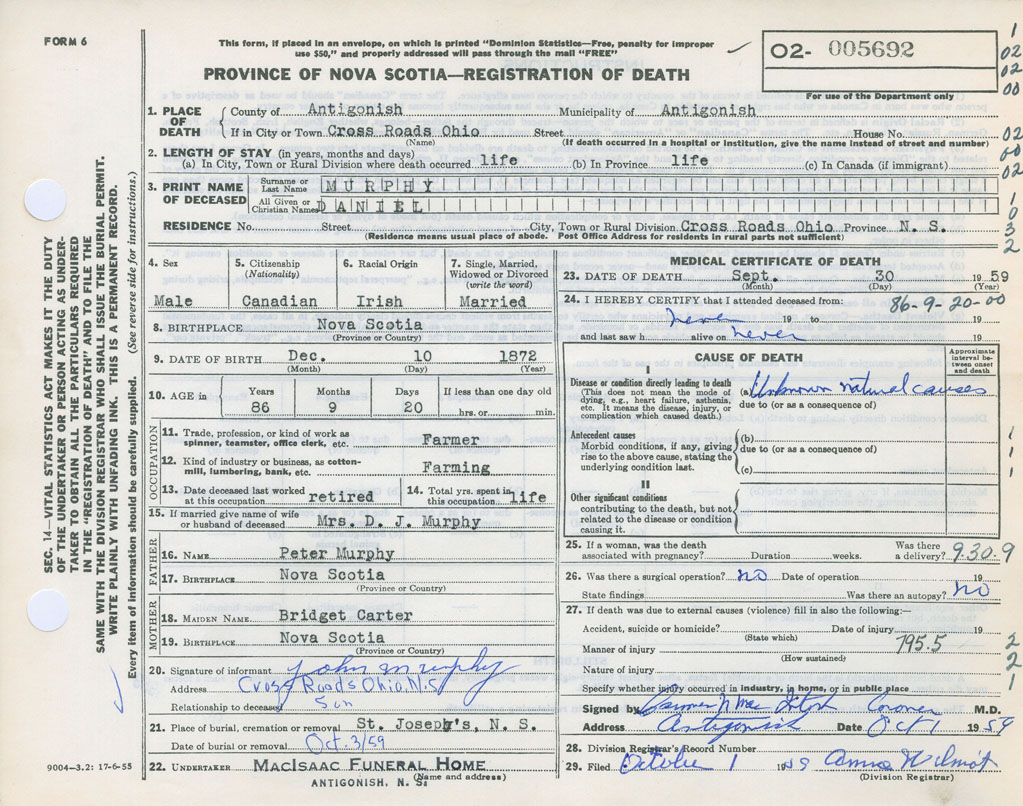 FORM 6
This form, if placed in an envelope, on which is printed "Dominion Statistics—Free, penalty for improper
use $50," and properly addressed will pass through the mail "FREE"
PROVINCE OF NOVA SCOTIA—REGISTRATION OF DEATH
02- 005692
For use of the Department only
1
02
02
00
02
00
02
1
0
3
2
SEC. 14—VITAL STATISTICS ACT MAKES IT THE DUTY
OF THE UNDERTAKER OR PERSON ACTING AS UNDER-
TAKER TO OBTAIN ALL THE PARTICULARS REQUIRED
IN THE "REGISTRATION OF DEATH" AND TO FILE THE
SAME WITH THE DIVISION REGISTRAR WHO SHALL ISSUE THE BURIAL PERMIT.
WRITE PLAINLY WITH UNFADING INK. THIS IS A PERMANENT RECORD.
Every item of information should be carefully supplied. (See reverse side for instructions.)
1. PLACE OF DEATH
County of Antigonish Municipality of Antigonish
If in City or Town Cross Roads Ohio Street House No.
(Name) (If death occurred in a hospital or institution, give the name instead of street and number)
2. LENGTH OF STAY (in years, months and days)
(a) In City, Town or Rural Division where death occurred life (b) In Province life (c) In Canada (if immigrant)
3. PRINT NAME OF DECEASED
Surname or Last Name MURPHY
All Given or Christian Names DANIEL
RESIDENCE No. Street City, Town or Rural Division Cross Roads Ohio Province N. S.
(Residence means usual place of abode. Post Office Address for residents in rural parts not sufficient)
4. Sex
Male
5. Citizenship
(Nationality)
Canadian
6. Racial Origin
Irish
7. Single, Married,
Widowed or Divorced
(write the word)
Married
8. BIRTHPLACE Nova Scotia
(Province or Country)
9. DATE OF BIRTH Dec. 10 1872
(Month) (Day) (Year)
10. AGE in
Years Months Days If less than one day old
86 9 20 hrs. or min.
OCCUPATION
11. Trade, profession, or kind of work as
spinner, teamster, office clerk, etc. Farmer
12. Kind of industry or business, as cotten-
mill, lumbering, bank, etc. Farming
13. Date deceased last worked
at this occupation retired
14. Total yrs. spent in
this occupation life
15. If married give name of wife
or husband of deceased Mrs. D. J. Murphy
FATHER
16. NAME Peter Murphy
17. BIRTHPLACE Nova Scotia
(Province or Country)
MOTHER
18. MAIDEN NAME Bridget Carter
19. BIRTHPLACE Nova Scotia
(Province or Country)
20. Signature of informant John Murphy
Address Cross Roads Ohio N.S
Relationship to deceased Son
21. Place of burial, cremation or removal St. Joseph's, N. S.
Date of burial or removal Oct. 3/59
22. UNDERTAKER MACISAAC FUNERAL HOME
(Name and address)
ANTIGONISH, N. S.
9004-3.2: 17-6-55
MEDICAL CERTIFICATE OF DEATH
23. DATE OF DEATH Sept. 30 1959
(Month) (Day) (Year)
24. I HEREBY CERTIFY that I attended deceased from: 86-9-20-00
never 19 to 19
and last saw h alive on never 19
CAUSE OF DEATH
Approximate
interval be-
tween onset
and death
I
Disease or condition directly leading to death
(This does not mean the mode of
dying, e.g., heart failure, asthenia,
etc. It means the disease, injury, or
complication which caused death.)
(a) Unknown natural causes
due to (or as a consequence of)
Antecedent causes
Morbid conditions, if any, giving
rise to the above cause, stating the
underlying condition last.
(b)
due to (or as a consequence of)
(c)
1
1
1
II
Other significant conditions
contributing to the death, but not
related to the disease or condition
causing it.
25. If a woman, was the death
associated with pregnancy? Duration weeks. Was there
a delivery? 930.9
26. Was there a surgical operation? no Date of operation 19
State findings Was there an autopsy? no
27. If death was due to external causes (violence) fill in also the following:—
Accident, suicide or homicide? Date of injury 19
(State which)
Manner of injury 795.5
(How sustained)
Nature of injury
2
2
1
Specify whether injury occurred in industry, in home, or in public place
Signed by Coroner M.D.
Address Antigonish Date Oct 1 1959
28. Division Registrar's Record Number
29. Filed October 1 1959
(Division Registrar)